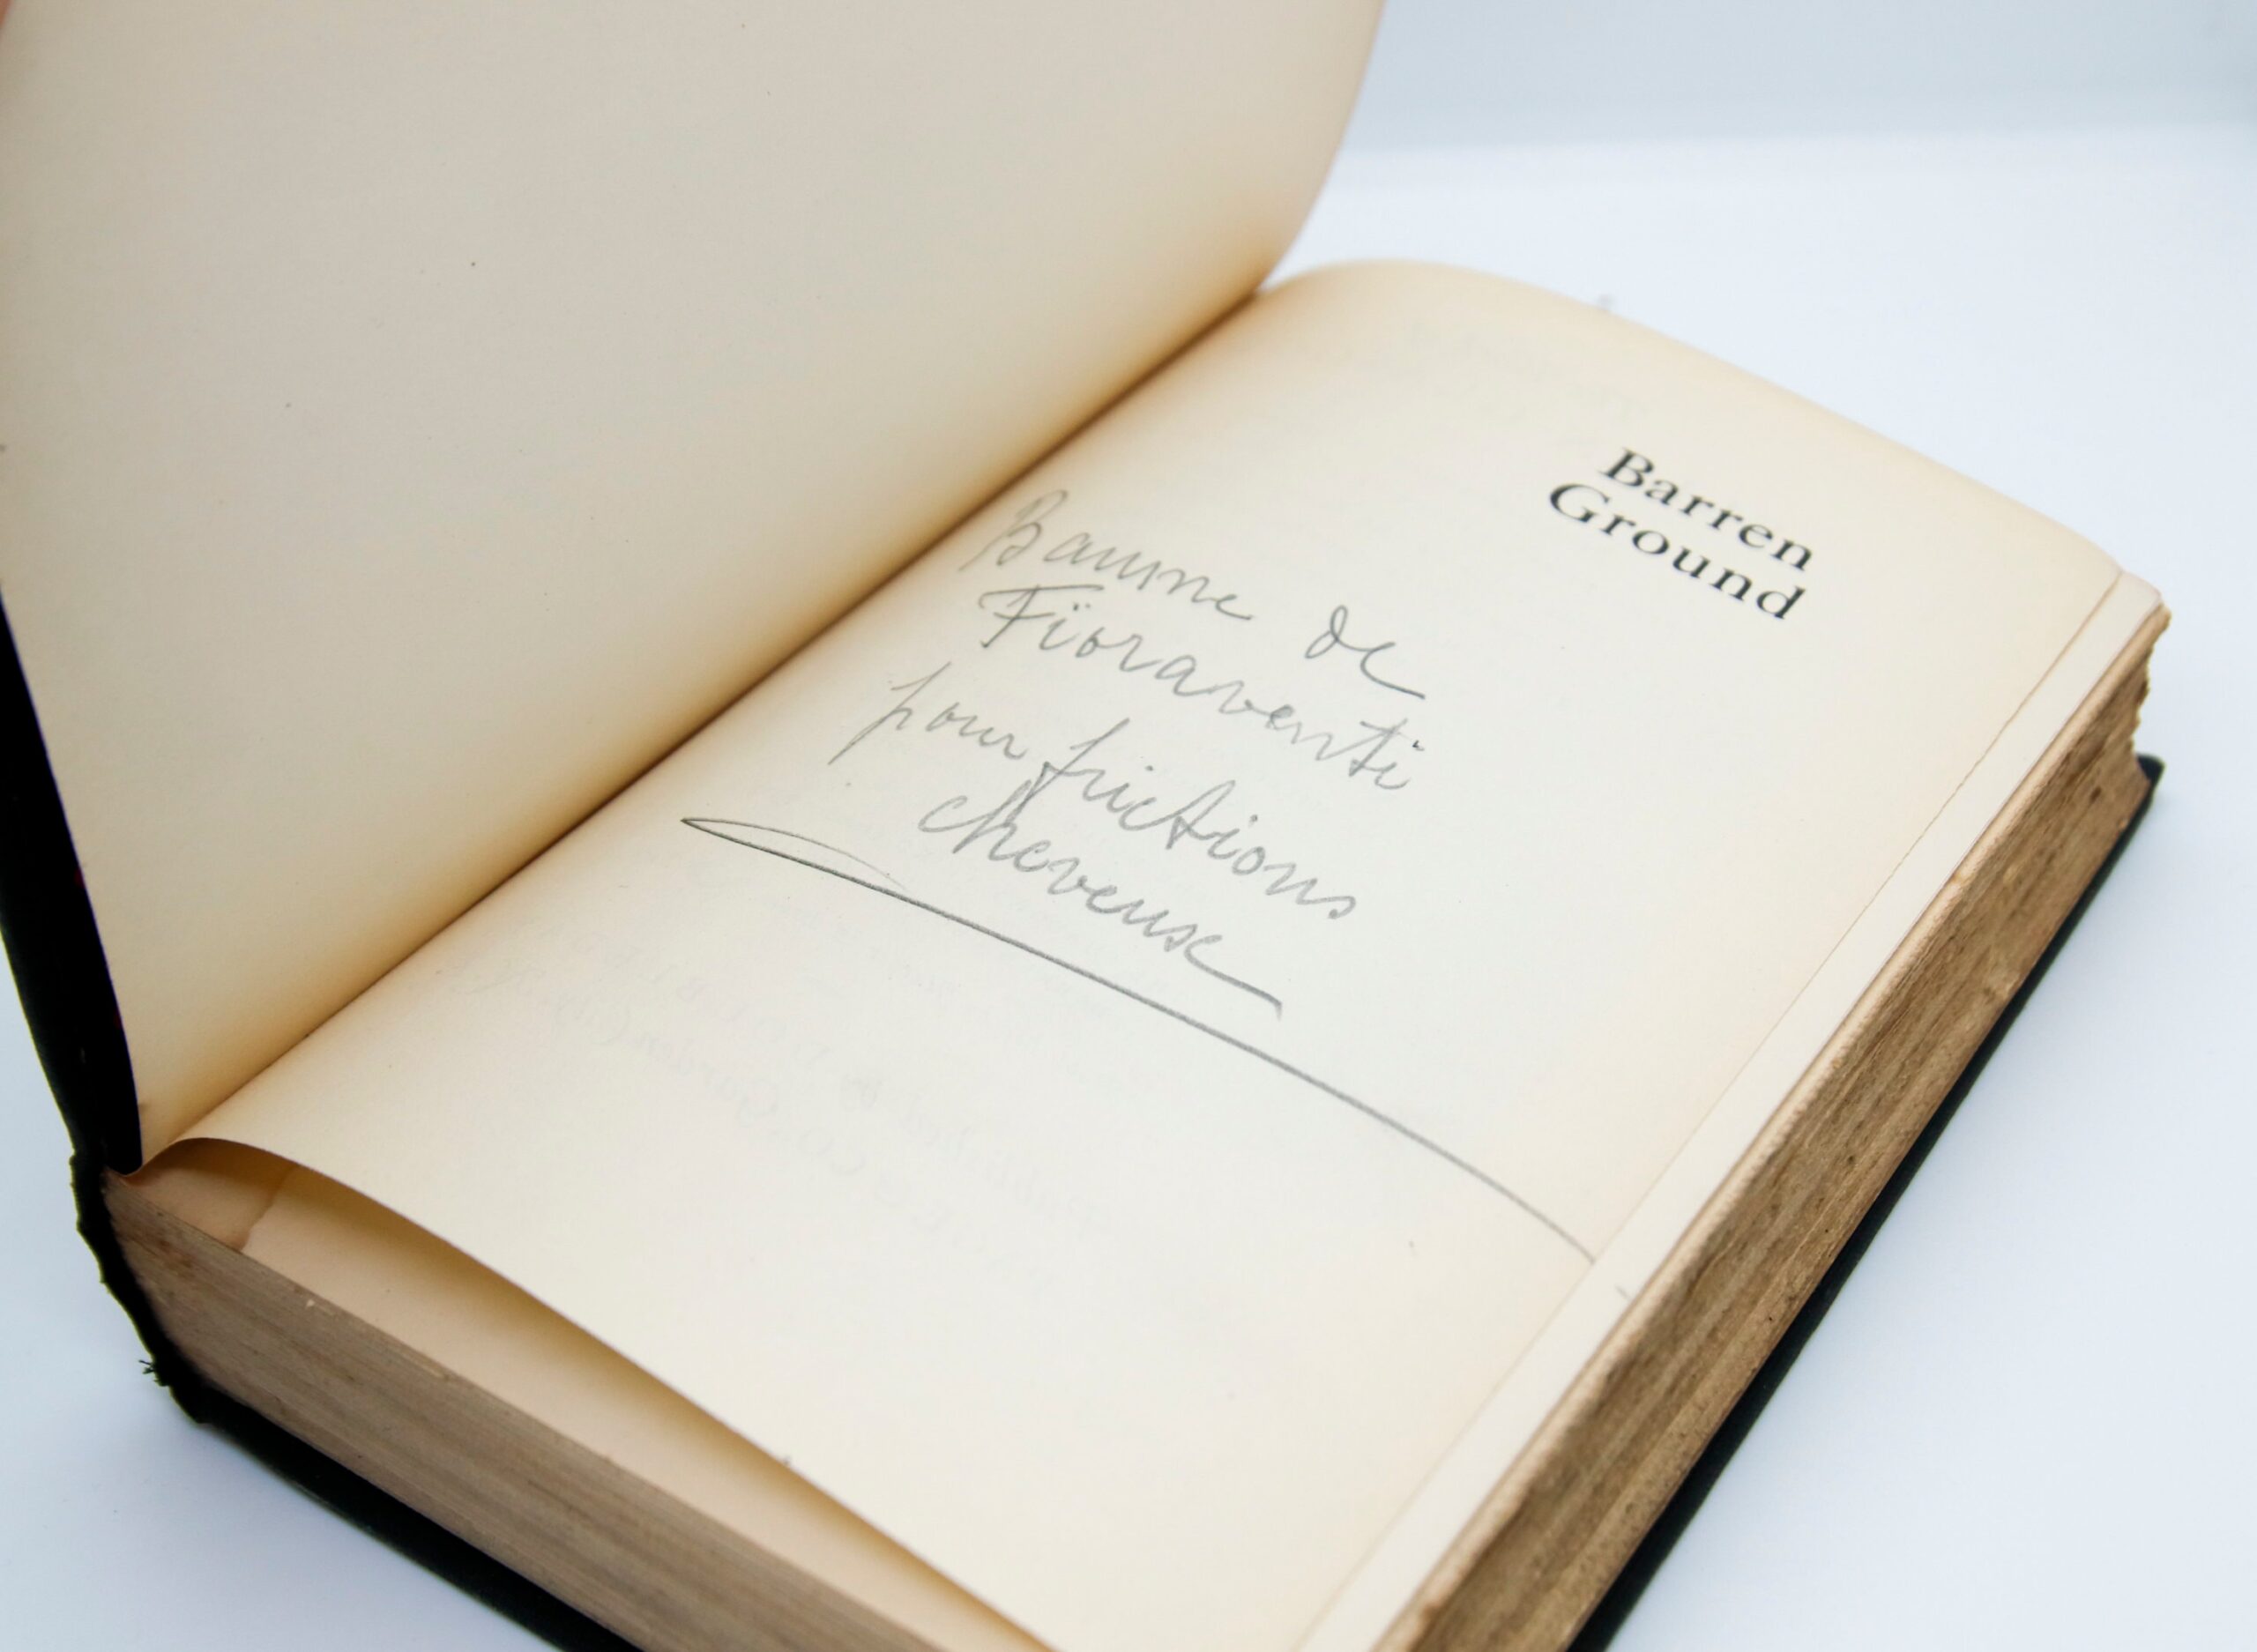 Barren
Ground
Baume de
Fioraventi
pour frictions
cheveux